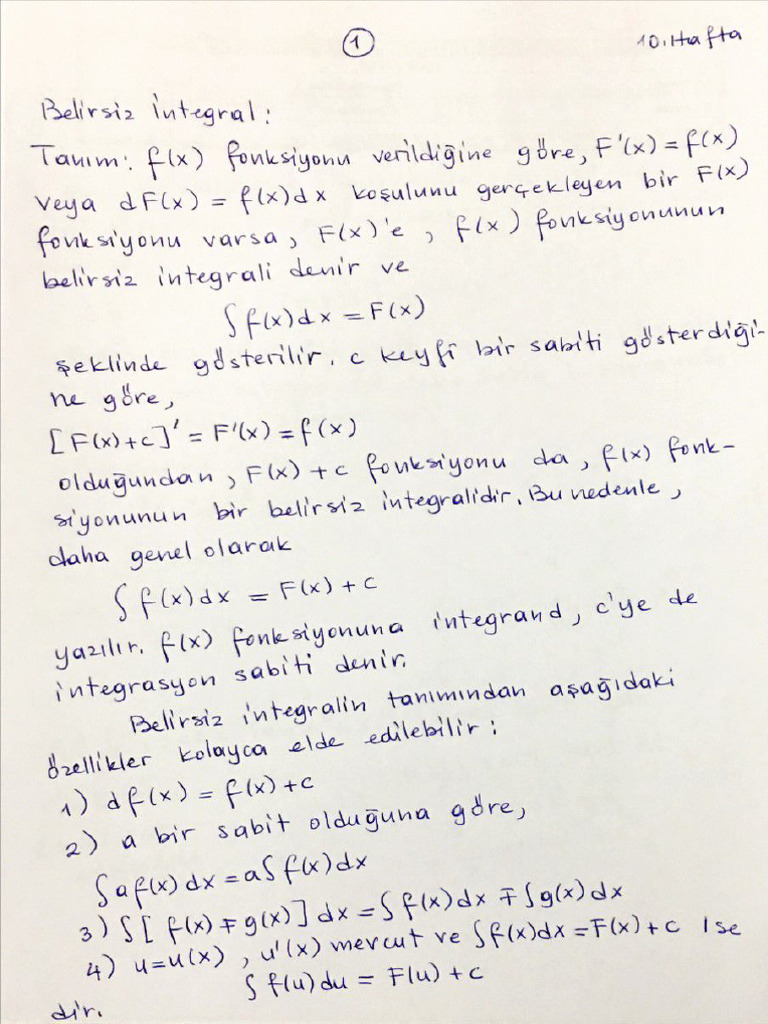 1
10.Hafta
Belirsiz integral:
Tanım: f(x) fonksiyonu verildiğine göre, F'(x) = f(x)
veya dF(x) = f(x)dx koşulunu gerçekleyen bir F(x)
fonksiyonu varsa, F(x)'e, f(x) fonksiyonunun
belirsiz integrali denir ve
∫f(x)dx = F(x)
şeklinde gösterilir. c keyfî bir sabiti gösterdiği-
ne göre,
[F(x)+c]' = F'(x) = f(x)
olduğundan, F(x) + c fonksiyonu da, f(x) fonk-
siyonunun bir belirsiz integralidir. Bu nedenle,
daha genel olarak
∫f(x)dx = F(x) + c
yazılır. f(x) fonksiyonuna integrand, c'ye de
integrasyon sabiti denir.
Belirsiz integralin tanımından aşağıdaki
özellikler kolayca elde edilebilir:
1) df(x) = f(x)+c
2) a bir sabit olduğuna göre,
∫af(x)dx = a∫f(x)dx
3) ∫[f(x)∓g(x)]dx = ∫f(x)dx ∓ ∫g(x)dx
4) u=u(x), u'(x) mevcut ve ∫f(x)dx = F(x)+c ise
∫f(u)du = F(u)+c
dir.